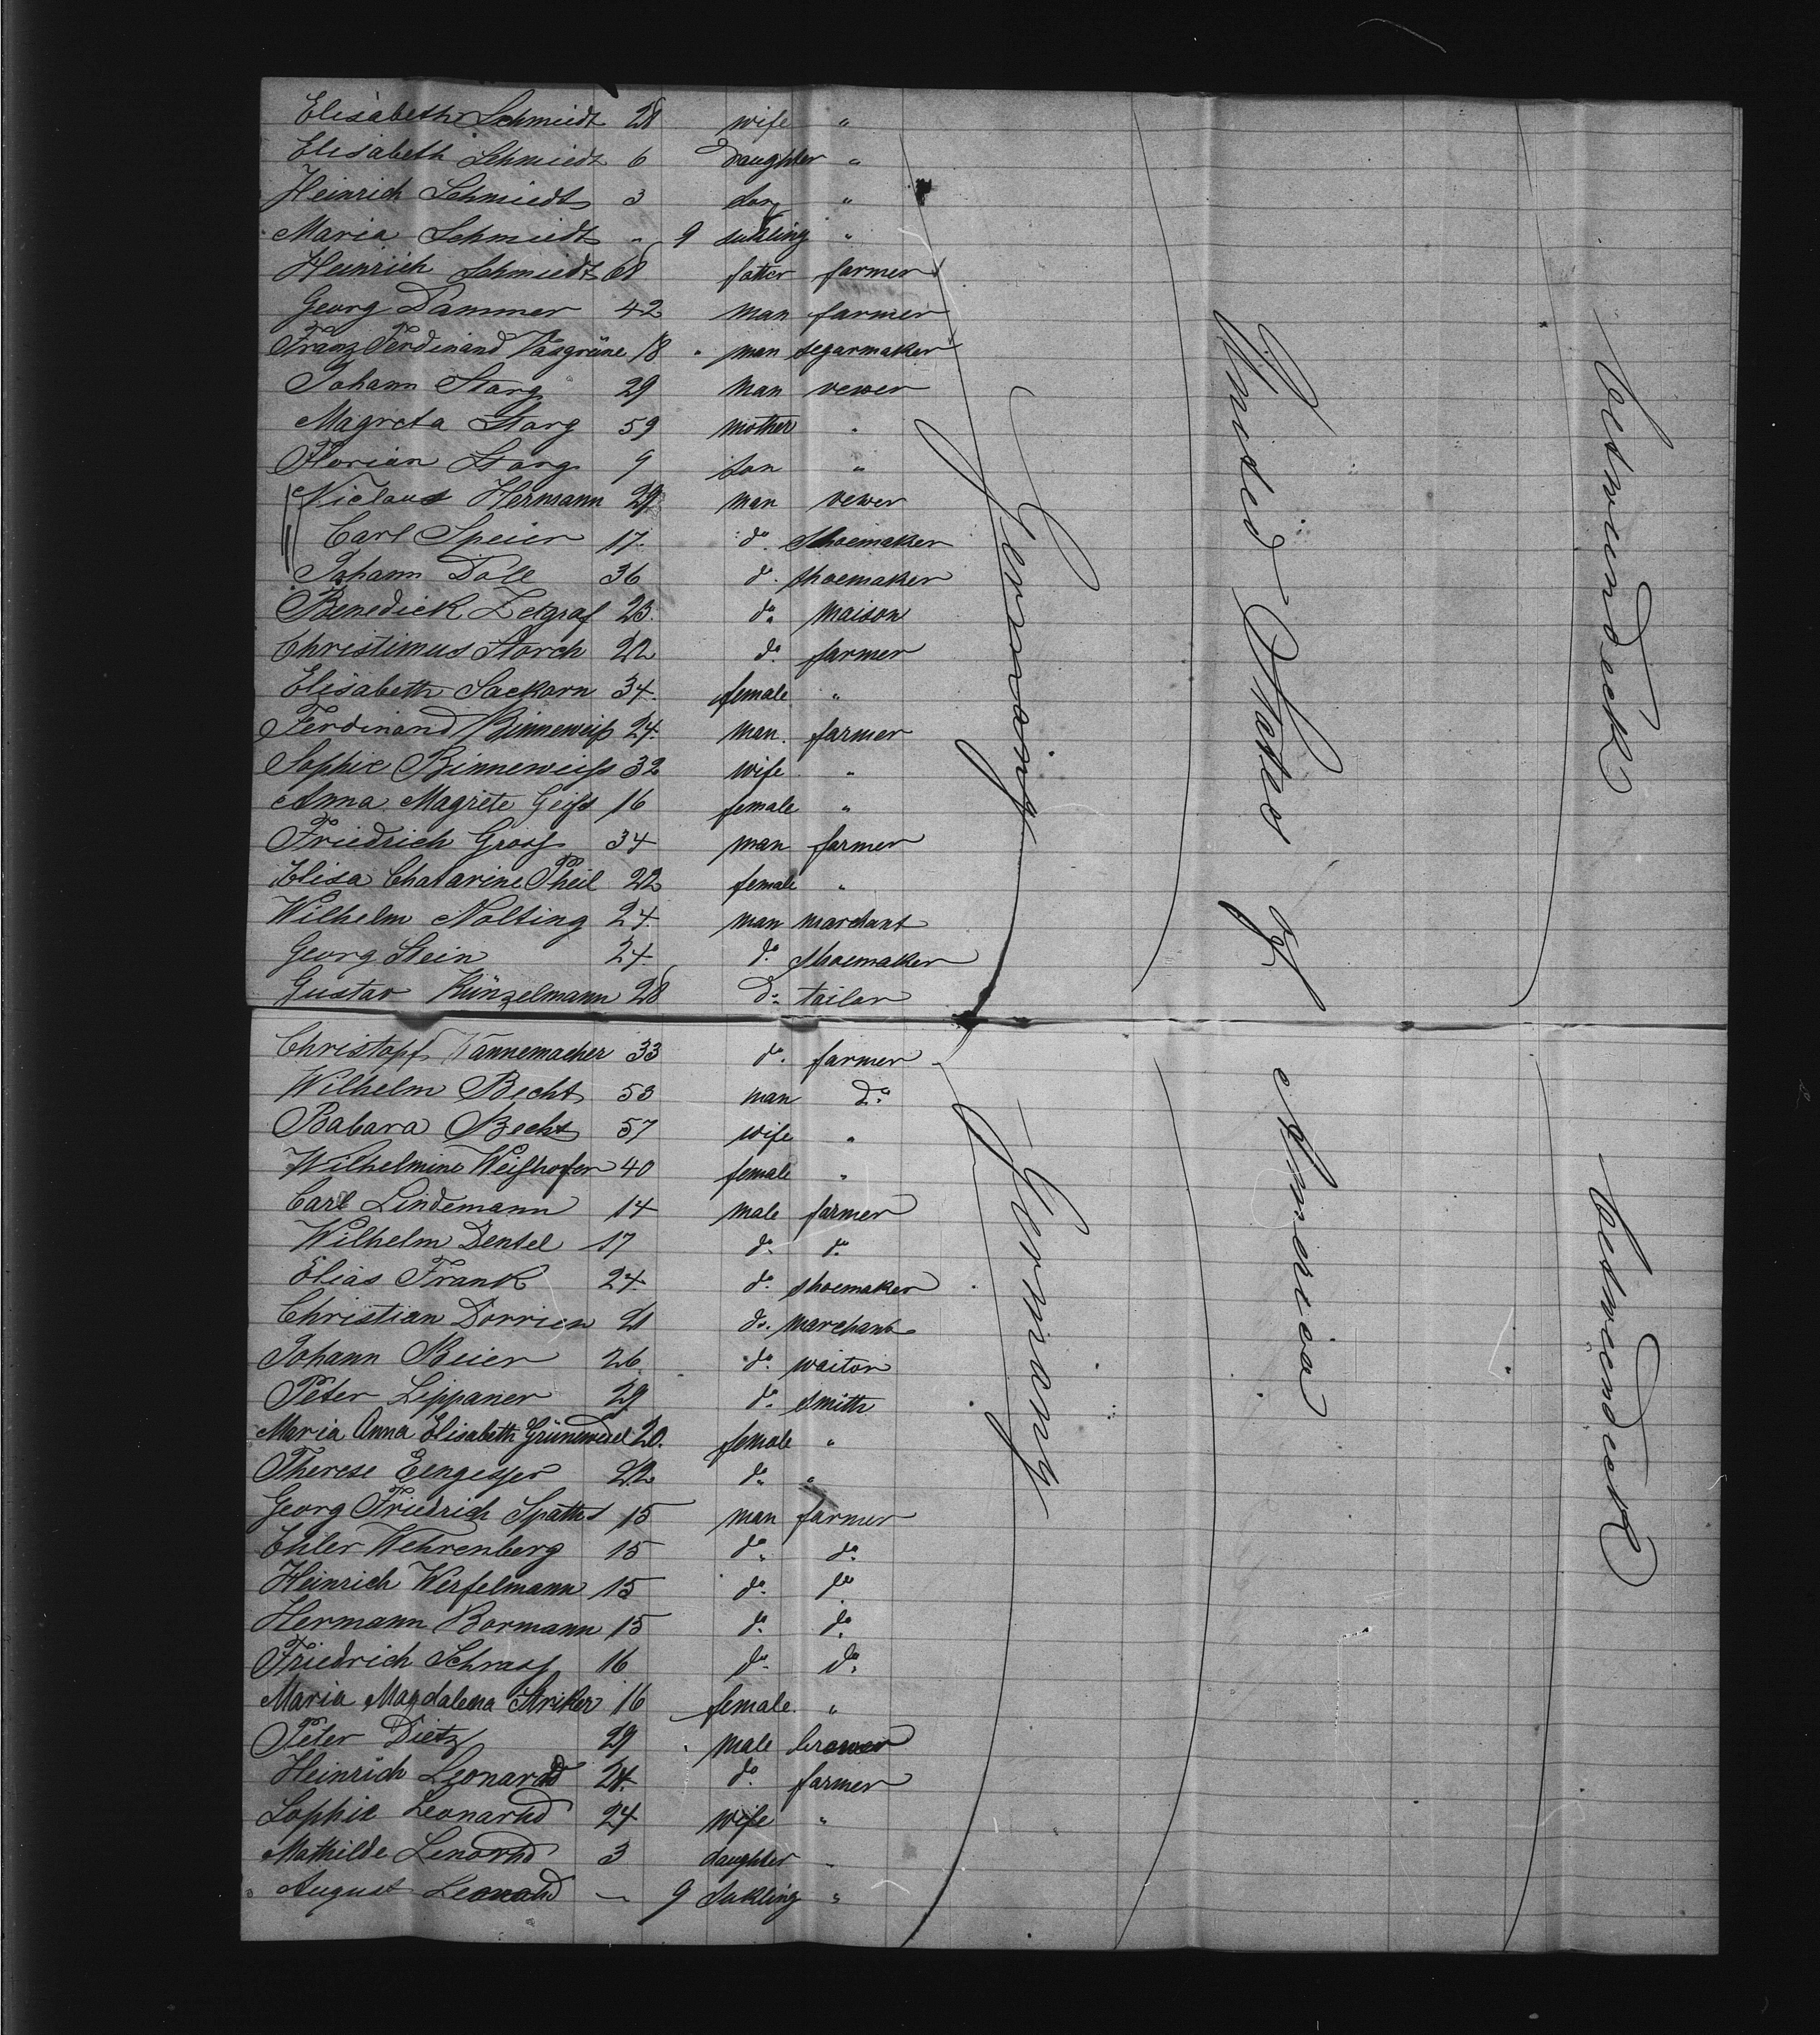 Elisabeth Schmidt 28 wife "
Elisabeth Schmiedt 6 daughter "
Heinrich Schmiedt 3 son "
Maria Schmiedt " 9 sukling "
Heinrich Schmiedt 68 father farmer
Georg Dammer 42 man farmer
Franz Ferdinand Vasgrüne 18 " man segarmaker
Johann Starg 29 man vewer
Magreta Starg 59 mother "
Florian Starg 9 son "
Niclaus Hermann 29 man vewer
Carl Speier 17 do. Shoemaker
Johann Doll 36 do. shoemaker
Benedick Zetgraf 23 do. maison
Christimus Storch 22 do. farmer
Elisabeth Sackorn 34 female "
Ferdinand Binneweiß 24 man farmer
Sophie Binneweiss 32 wife "
Anna Magrete Geiss 16 female "
Friedrich Gross 34 man farmer
Elisa Chatarine Theil 22 female "
Wilhelm Nolting 24 man marchant
Georg Stein 24 do. Shoemaker
Gustav Künzelmann 28 do. tailor
Germany
United States of
between deck
Christopf Tannemacher 33 do. farmer
Wilhelm Becht 53 man do.
Babara Becht 57 wife "
Wilhelmine Weishofer 40 female "
Carl Lindemann 14 male farmer
Wilhelm Densel 17 do. do.
Elias Frank 24 do. shoemaker
Christian Dorrien 21 do. marchant
Johann Beier 26 do. waitor
Peter Lippaner 29 do. smith
Maria Anna Elisabeth Grünewedel 20 female "
Therese 22 do. "
Georg Friedrich Späths 15 man farmer
Ehler Wehrenberg 15 do. do.
Heinrich Werfelmann 15 do. do.
Hermann Bormann 15 do. do.
Friedrich Schrass 16 do. do.
Maria Magdalena Striker 16 female "
Peter Dietz 29 male brewer
Heinrich Leonard 24 do. farmer
Sophie Leonarhd 24 wife "
Mathilde Lenorhd 3 daughter "
August Leonahd — 9 Sukling "
Germany
America
between deck